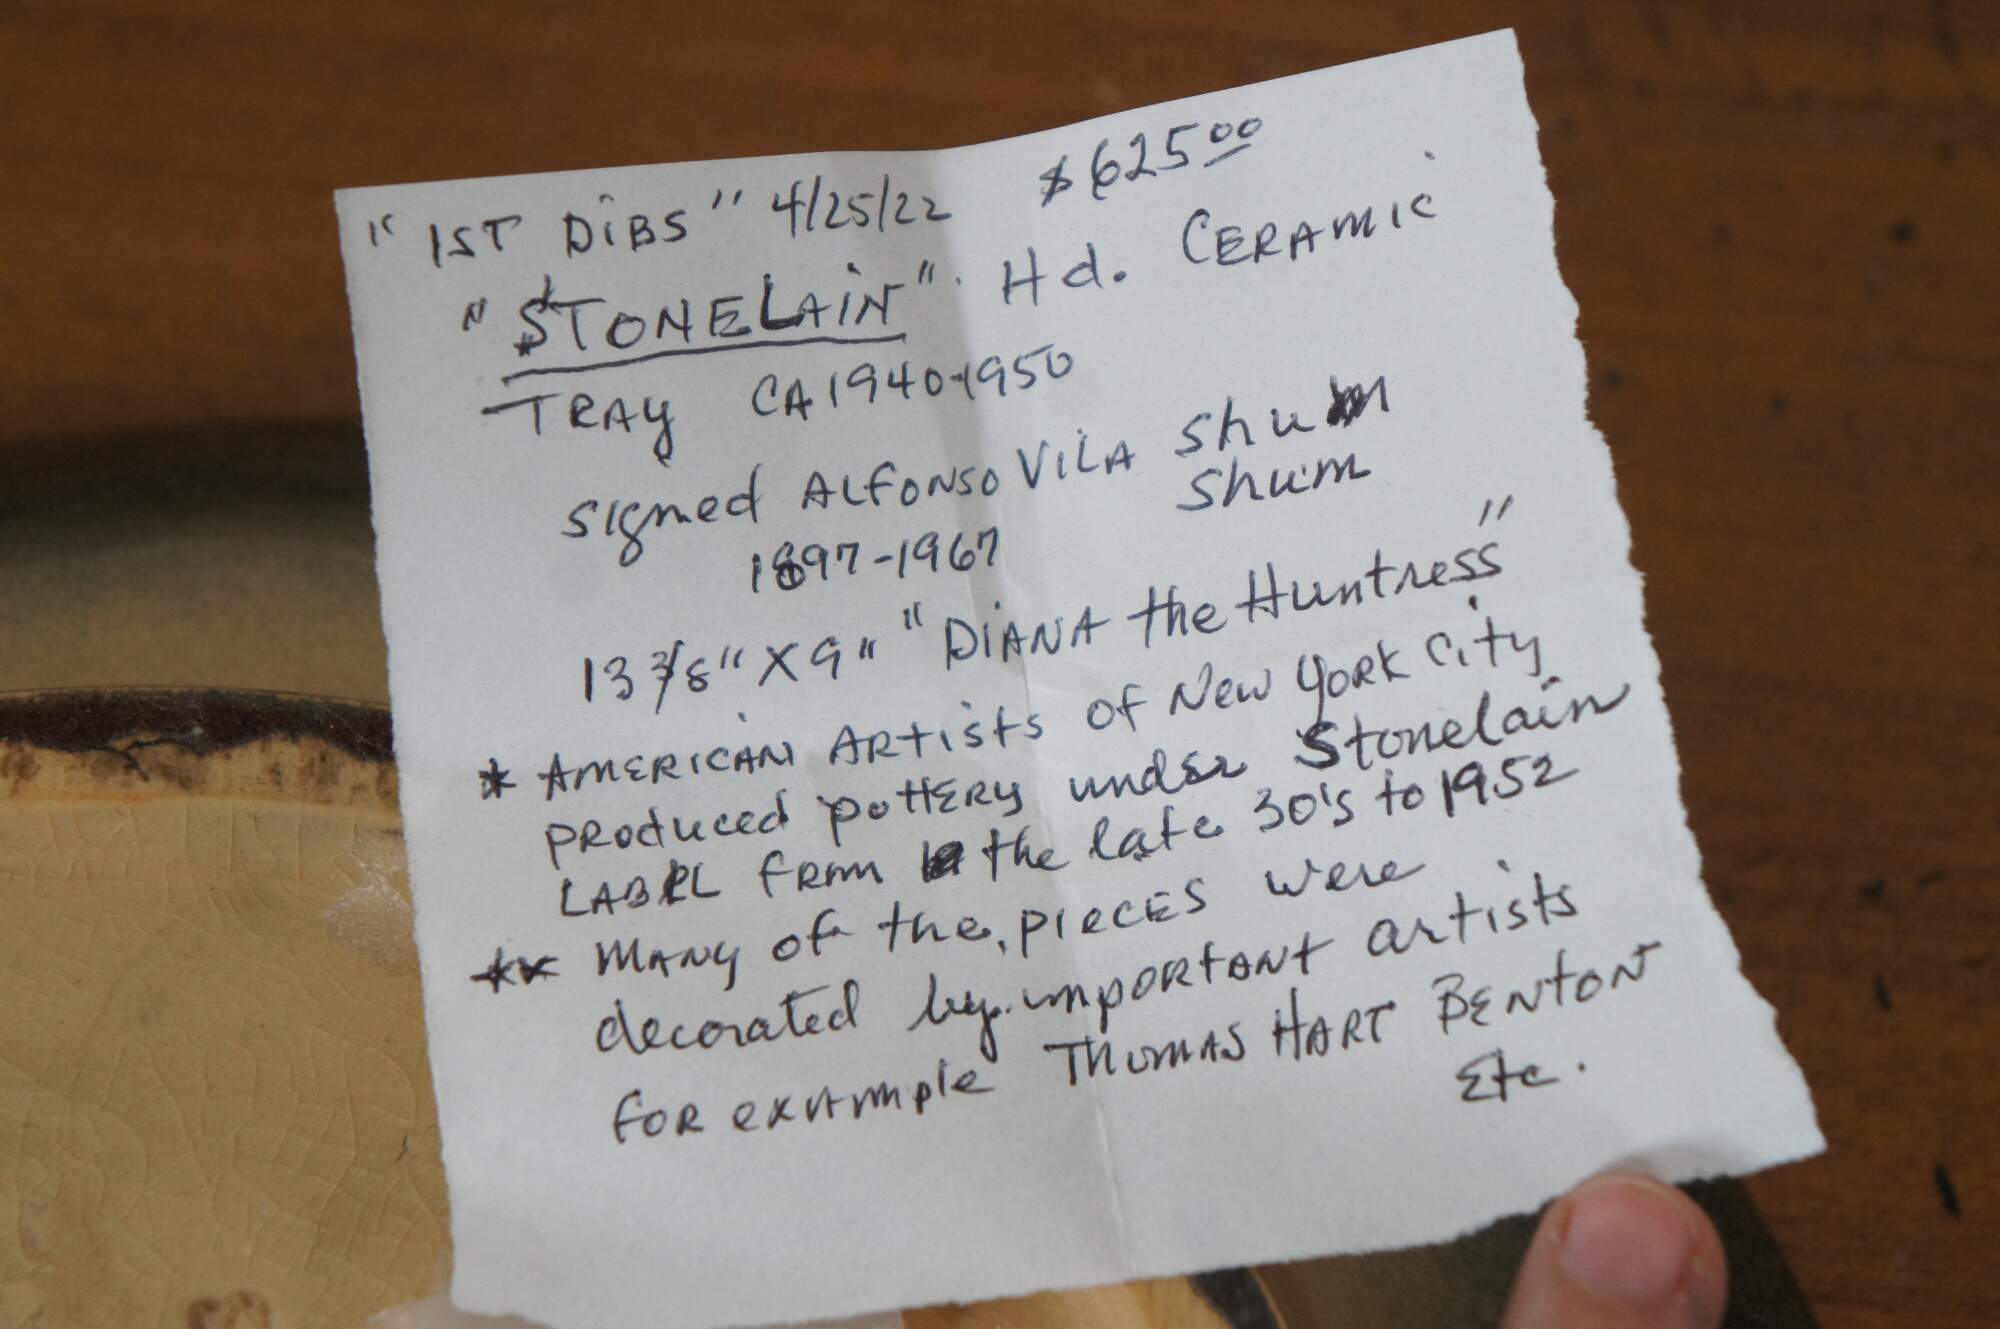 "1ST DIBS" 4/25/22 $625.00
"STONELAIN". Hd. CERAMIC
TRAY CA 1940-1950
signed ALFONSO VILA Shum
1897-1967 Shum
13 3/8" X 9" "DIANA the Huntress"
* AMERICAN ARtists of New YORK City
PRoduced pottERy under Stonelain
LABEL fRom the late 30's to 1952
** MANY of the pIECES were
decorated by important artists
foR example THOMAS HART BENTON
Etc.